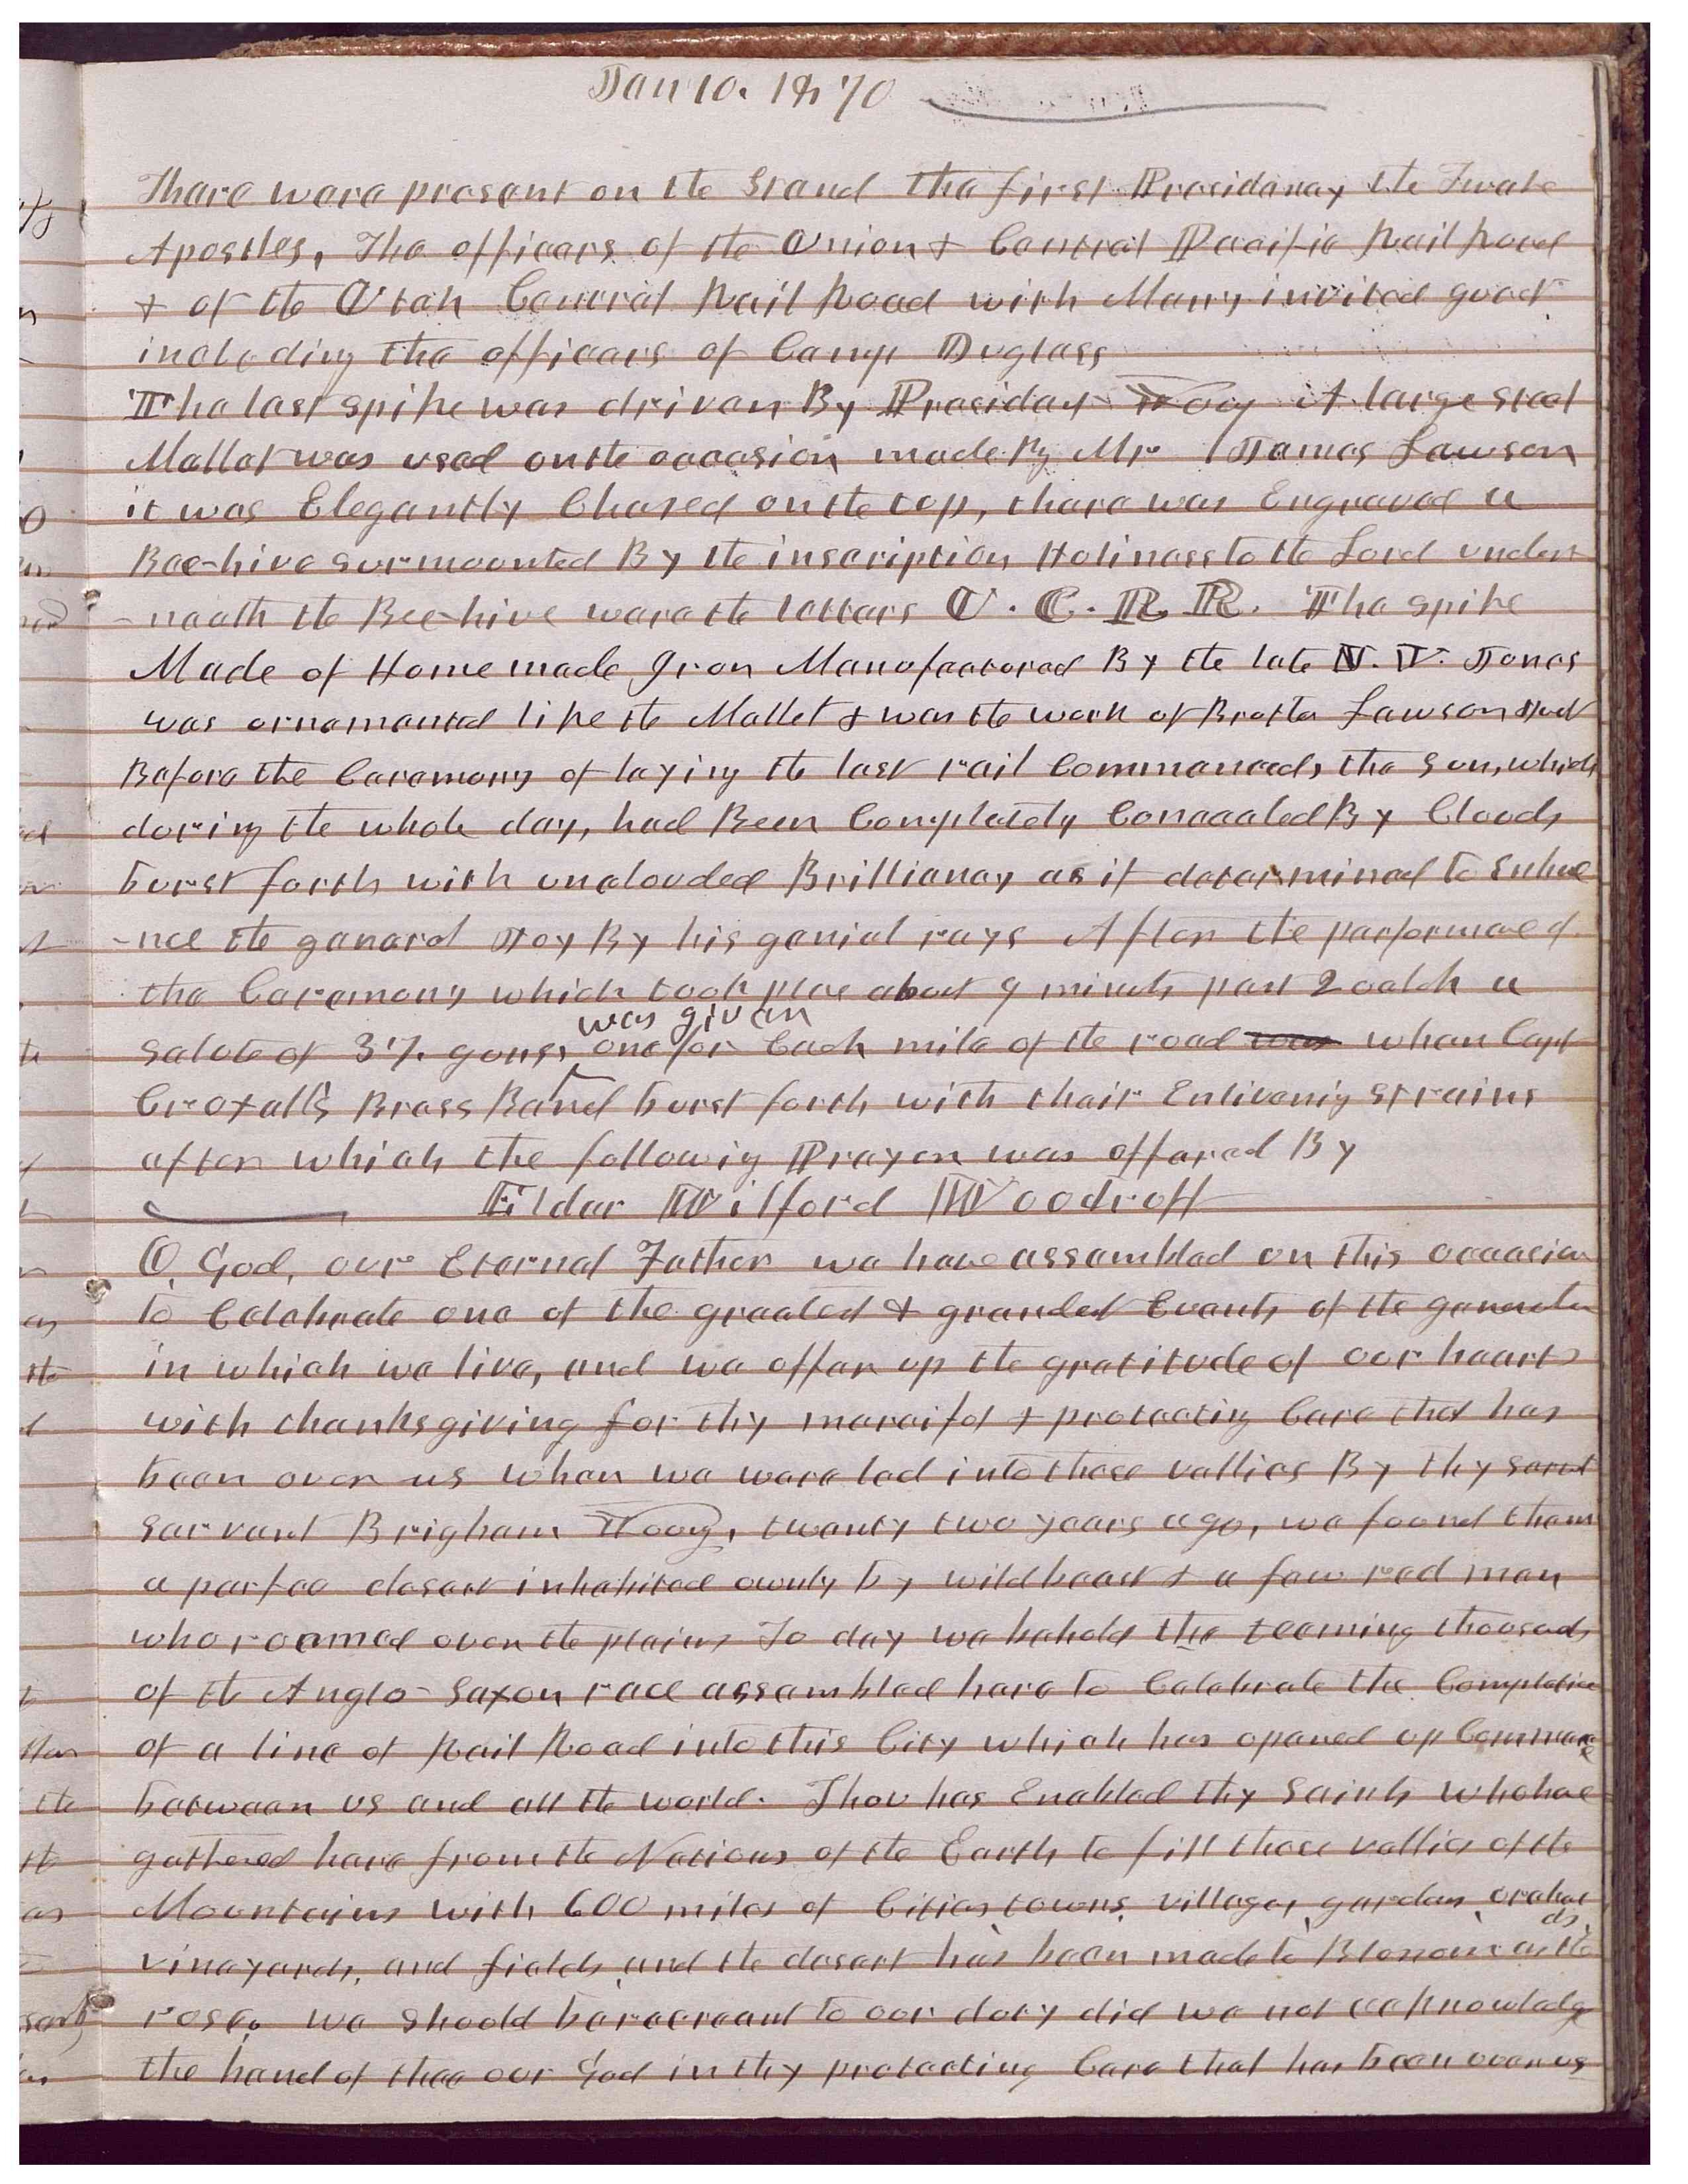 Jan 10. 1870
There were present on the Stand the first Presidency the Twelve
Apostles, The officers of the Union & Central Pacific Rail Road
& of the Utah Central Rail Road with Many invited guest
including the officers of Camp Duglass
The last spike was driven By Presidant Young A large steel
Mallet was used on the occasion made By Mr James Lawson
it was Elegantly Chased on the top, there was Engraved a
Bee-hive surmounted By the inscription Holiness to the Lord under
-neath the Bee-hive were the letters U. C. R R. The spike
Made of Home made Iron Manufactored By the late N. V. Jones
was ornamented like the Mallet & was the work of Brother Lawson Just
Before the Ceremony of laying the last rail Commenced, the sun, which
during the whole day, had Been Completely Concealed By Clouds
burst forth with unclouded Brilliancy as if determined to Enhae
-nce the general Joy By his genial rays After the performace of
the Ceremony which took place about 9 minuts past 2 oclok a
was given
salute of 37. guns, one for Each mile of the road was when Capt
Croxall's Brass Band burst forth with their Enlivenig strains
after which the followig Prayer was offered By
Elder Wilford Woodruff
O God, our Eternal Father we have assembled on this occasion
to Celebrate one of the greatest & grandest Events of the generation
in which we live, and we offer up the gratitude of our hearts
with thanksgiving for thy mercifol & protectig Care that has
been over us when we were led into these vallies By thy sarvt
Servant Brigham Young, twenty two years ago, we found them
a perfec desert inhabited ownly by wild beast & a few red men
who roamed over the plains To day we behold the teeming thousads
of the Anglo-Saxon race assembled here to Celebrate the Completion
of a line of Rail Road into this City which has opened up Commerce
between us and all the world. Thou has Enabled thy Saints who have
gathered here from the Nations of the Earth to fill these vallies of the
Mountains with 600 miles of Cities, towns, villages, gardens, orchar
ds,
vineyards, and fields, and the desert has been made to Blossom as the
rose. we should be recreant to our duty did we not acknowledge
the hand of thee our God in thy protecting Care that has been over us